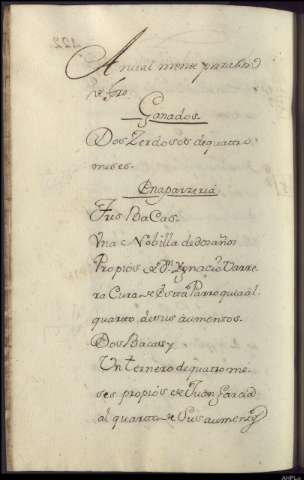 Anual mente para dho
Ganados.
Dos Zerdosos de quattro
meses.
En aparzeria
Tres BaCas.
Vna Nobilla de dos años
Propios de Dn Ygnacio Varre
ra Cura de Esttta Parroquia al
quartto de sus aumentos.
Dos Bacas y
Un ternero de quatro me
ses propios de Juan Garcia
al quarto de sus aumentos